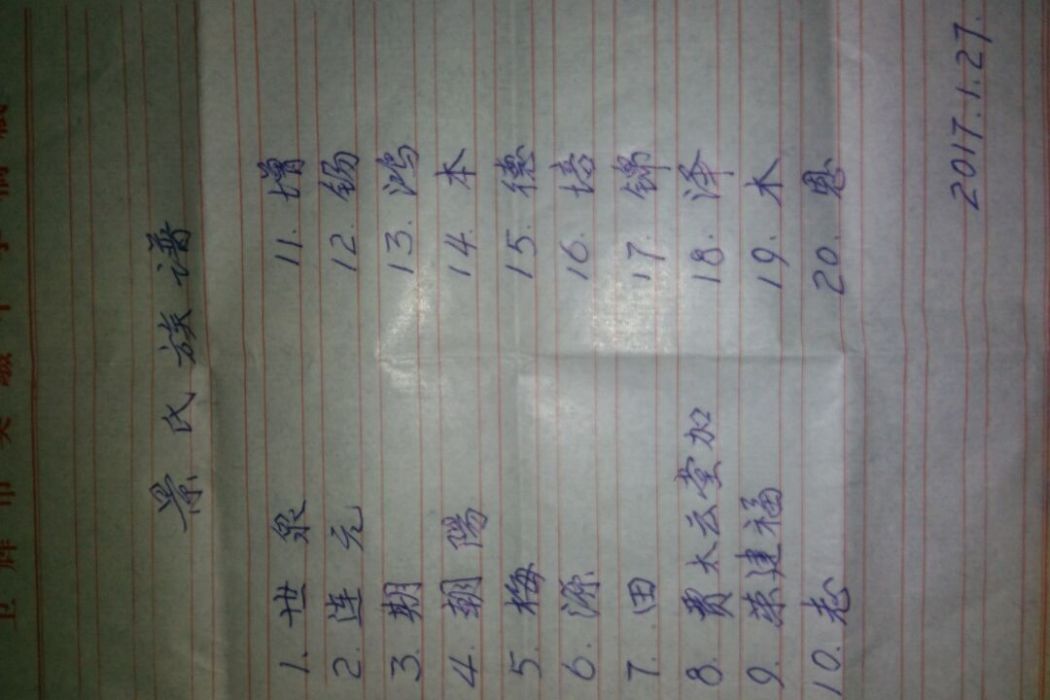 卫辉市实验中学稿纸
景氏族谱
1. 世泉
2. 连元
3. 朝
4. 朝陽
5. 梅
6. 源
7. 田
8. 贯太云堂加
9. 荣建福
10. 志
11. 增
12. 锡
13. 鸿
14. 本
15. 德
16. 培
17. 锦
18. 泽
19. 木
20. 恩
2017.1.27.